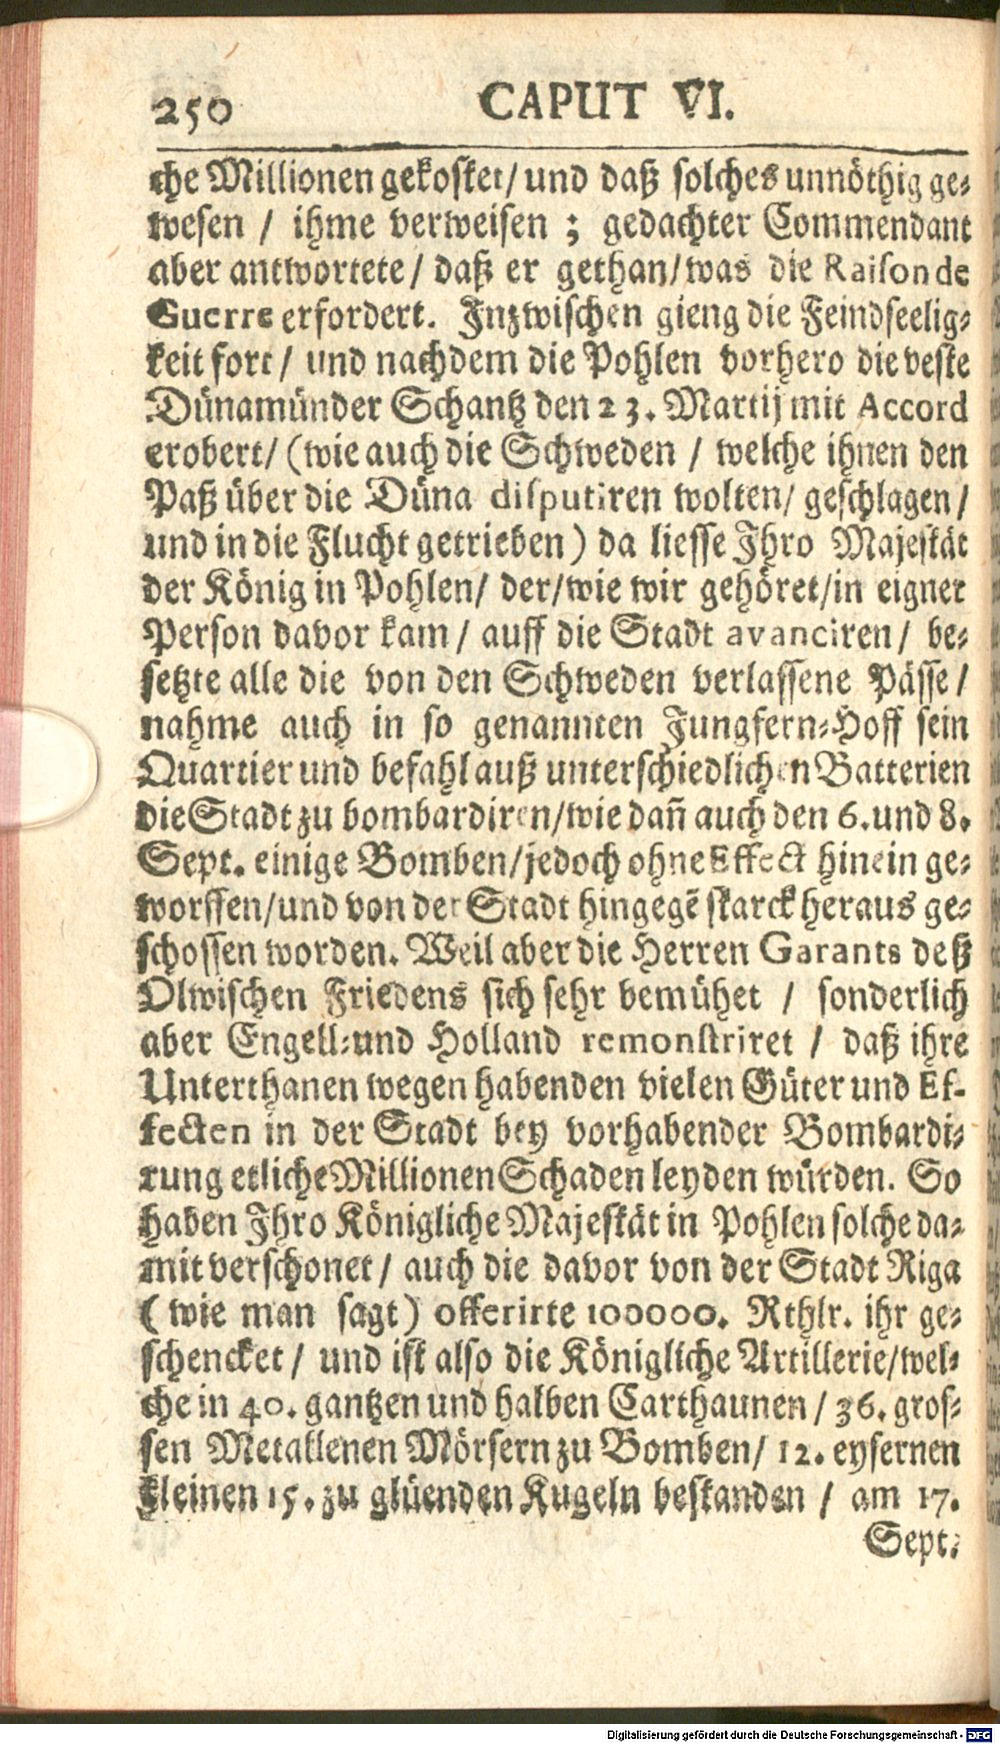 250 CAPUT VI.
che Millionen gekostet/ und daß solches unnöthig ge-
wesen / ihme verweisen ; gedachter Commendant
aber antwortete / daß er gethan/was die Raison de
Guerre erfordert. Inzwischen gieng die Feindseelig-
keit fort / und nachdem die Pohlen vorhero die veste
Dünamünder Schantz den 23. Martij mit Accord
erobert/ (wie auch die Schweden / welche ihnen den
Paß über die Düna disputiren wolten/ geschlagen /
und in die Flucht getrieben) da liesse Ihro Majestät
der König in Pohlen/ der/wie wir gehöret/in eigner
Person davor kam / auff die Stadt avanciren / be-
setzte alle die von den Schweden verlassene Pässe /
nahme auch in so genannten Jungfern-Hoff sein
Quartier und befahl auß unterschiedlichen Batterien
die Stadt zu bombardiren/wie dañ auch den 6. und 8.
Sept. einige Bomben/jedoch ohne Effect hinein ge-
worffen/und von der Stadt hingegẽ starck heraus ge-
schossen worden. Weil aber die Herren Garants deß
Olwischen Friedens sich sehr bemühet / sonderlich
aber Engell-und Holland remonstriret / daß ihre
Unterthanen wegen habenden vielen Güter und Ef-
fecten in der Stadt bey vorhabender Bombardi-
rung etliche Millionen Schaden leyden würden. So
haben Ihro Königliche Majestät in Pohlen solche da-
mit verschonet / auch die davor von der Stadt Riga
( wie man sagt) offerirte 100000. Rthlr. ihr ge-
schencket / und ist also die Königliche Artillerie/wel-
che in 40. gantzen und halben Carthaunen / 36. gros-
sen Metallenen Mörsern zu Bomben/ 12. eysernen
kleinen 15. zu glüenden Kugeln bestanden / am 17.
Sept.
Digitalisierung gefördert durch die Deutsche Forschungsgemeinschaft - DFG